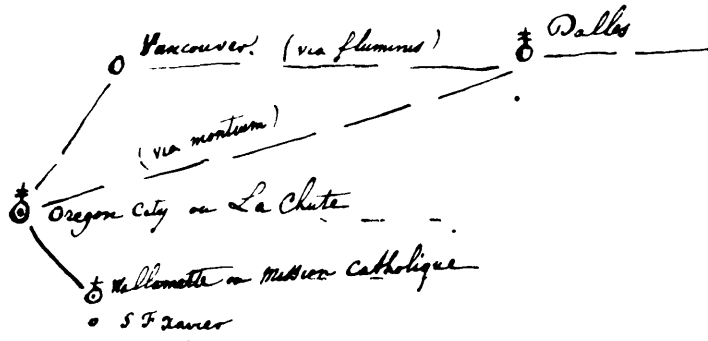 Vancouver. (via fluminis)
Dalles
(via montium)
Oregon City ou La Chute
Wallamette ou Mission Catholique
S F Xavier